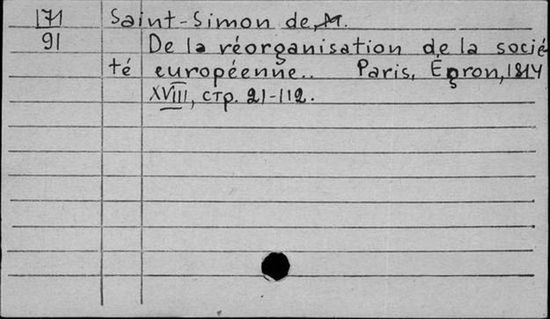 171 Saint-Simon de, M.
91 De la réorganisation de la socié
té européenne.. Paris, Égron, 1814
XVIII, стр. 21-112.